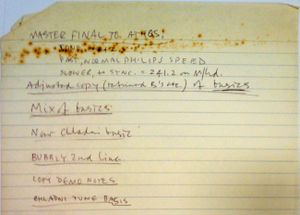 MASTER FINAL TO
FAST, NORMAL PHILIPS SPEED
SLOWER, to SYNC. = 241.2 on
Adjusted copy (returned B's etc.) of basics
Mix of basics
New Chladni basic
BUBBLY 2nd line
COPY DEMO NOTES
CHLADNI TUNE BASIS